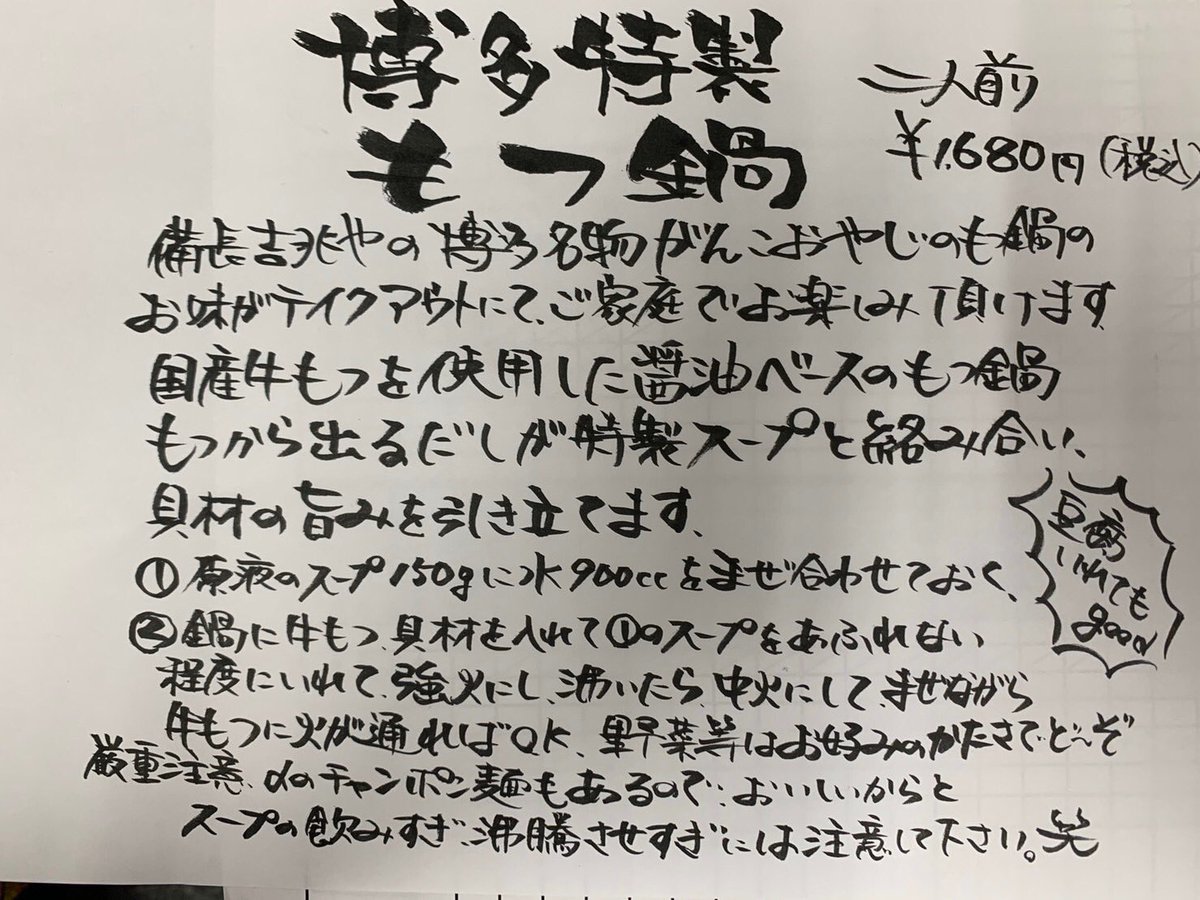 博多特製
もつ鍋
二人前
¥1,680円(税込)
備長吉兆やの博多名物がんこおやじのも鍋の
お味がテイクアウトにて、ご家庭でお楽しみ頂けます
国産牛もつを使用した醤油ベースのもつ鍋
もつから出るだしが特製スープと絡み合い、
具材の旨みを引き立てます、
①原液のスープ150gに水900ccをまぜ合わせておく、
②鍋に牛もつ、具材を入れて①のスープをあふれない
程度にいれて、強火にし、沸いたら、中火にして、まぜながら
牛もつに火が通ればOK、野菜等はお好みのかたさでど〜ぞ
豆腐
いれても
good
厳重注意、〆のチャンポン麺もあるので、おいしいからと
スープの飲みすぎ、沸騰させすぎには注意して下さい。笑